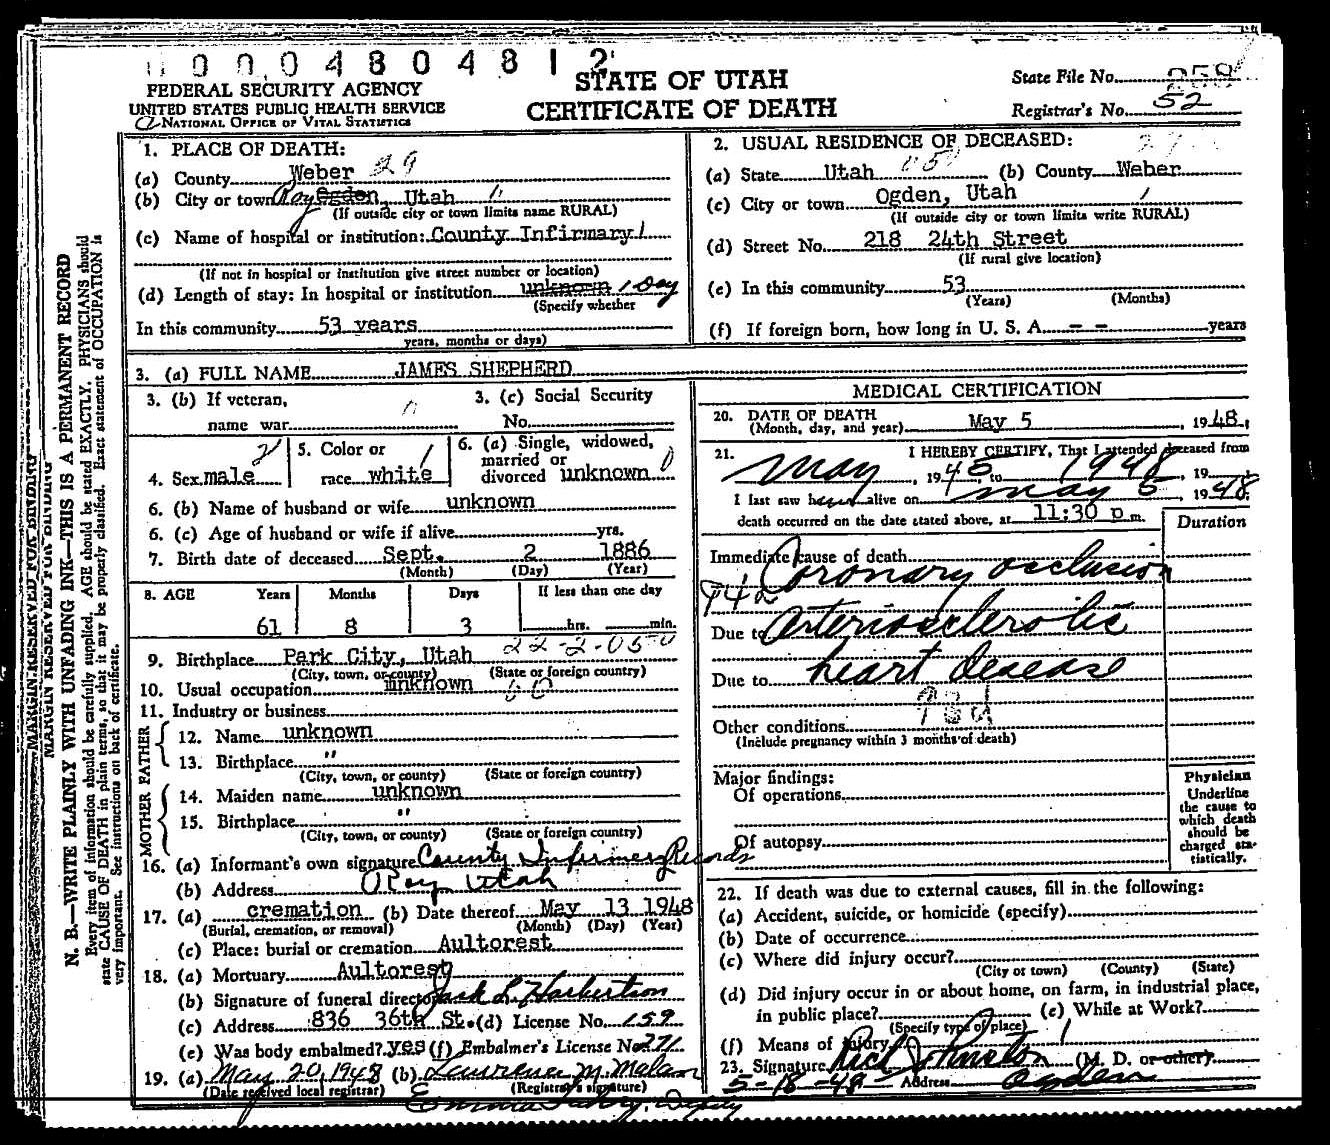 0 0 0 4 8 0 4 8 1 2
FEDERAL SECURITY AGENCY
UNITED STATES PUBLIC HEALTH SERVICE
NATIONAL OFFICE OF VITAL STATISTICS
STATE OF UTAH
CERTIFICATE OF DEATH
State File No.
Registrar's No. 52
MARGIN RESERVED FOR BINDING
N. B.—WRITE PLAINLY WITH UNFADING INK—THIS IS A PERMANENT RECORD
Every item of information should be carefully supplied. AGE should be stated EXACTLY. PHYSICIANS should
state CAUSE OF DEATH in plain terms, so that it may be properly classified. Exact statement of OCCUPATION is
very important. See instructions on back of certificate.
1. PLACE OF DEATH:
(a) County Weber 29
(b) City or town Roy Ogden, Utah
(If outside city or town limits name RURAL)
(c) Name of hospital or institution: County Infirmary
(If not in hospital or institution give street number or location)
(d) Length of stay: In hospital or institution unknown 1 Day
(Specify whether
In this community 53 years
years, months or days)
2. USUAL RESIDENCE OF DECEASED:
(a) State Utah (b) County Weber
(c) City or town Ogden, Utah
(If outside city or town limits write RURAL)
(d) Street No. 218 24th Street
(If rural give location)
(e) In this community 53
(Years) (Months)
(f) If foreign born, how long in U. S. A. -- years
3. (a) FULL NAME JAMES SHEPHERD
3. (b) If veteran,
name war
3. (c) Social Security
No.
4. Sex male
5. Color or
race white
6. (a) Single, widowed,
married or
divorced unknown
6. (b) Name of husband or wife unknown
6. (c) Age of husband or wife if alive yrs.
7. Birth date of deceased Sept. 2 1886
(Month) (Day) (Year)
8. AGE Years Months Days If less than one day
61 8 3 hrs. min.
9. Birthplace Park City, Utah
(City, town, or county) (State or foreign country)
10. Usual occupation unknown
11. Industry or business
FATHER
12. Name unknown
13. Birthplace "
(City, town, or county) (State or foreign country)
MOTHER
14. Maiden name unknown
15. Birthplace "
(City, town, or county) (State or foreign country)
16. (a) Informant's own signature County Infirmery Records
(b) Address Roy Utah
17. (a) cremation (b) Date thereof May 13 1948
(Burial, cremation, or removal) (Month) (Day) (Year)
(c) Place: burial or cremation Aultorest
18. (a) Mortuary Aultorest
(b) Signature of funeral director Jack L. Harbertson
(c) Address 836 36th St. (d) License No. 159
(e) Was body embalmed? yes (f) Embalmer's License No. 271
19. (a) May 20, 1948 (b) Laurence M. Malan
(Date received local registrar) (Registrar's signature)
Deputy
MEDICAL CERTIFICATION
20. DATE OF DEATH
(Month, day, and year) May 5, 1948.
21. I HEREBY CERTIFY, That I attended deceased from
May, 1945, to 1948, 19
I last saw h alive on May 5, 1948.
death occurred on the date stated above, at 11:30 p m.
Duration
Immediate cause of death
Coronary occlusion
Due to arteriosclerotic
Due to heart desease
Other conditions
(Include pregnancy within 3 months of death)
Major findings:
Of operations
Of autopsy
Physician
Underline
the cause to
which death
should be
charged sta-
tistically.
22. If death was due to external causes, fill in the following:
(a) Accident, suicide, or homicide (specify)
(b) Date of occurrence
(c) Where did injury occur?
(City or town) (County) (State)
(d) Did injury occur in or about home, on farm, in industrial place,
in public place? (e) While at Work?
(Specify type of place)
(f) Means of injury
23. Signature Rich Johnston (M. D. or other)
5-18-48 Address Ogden